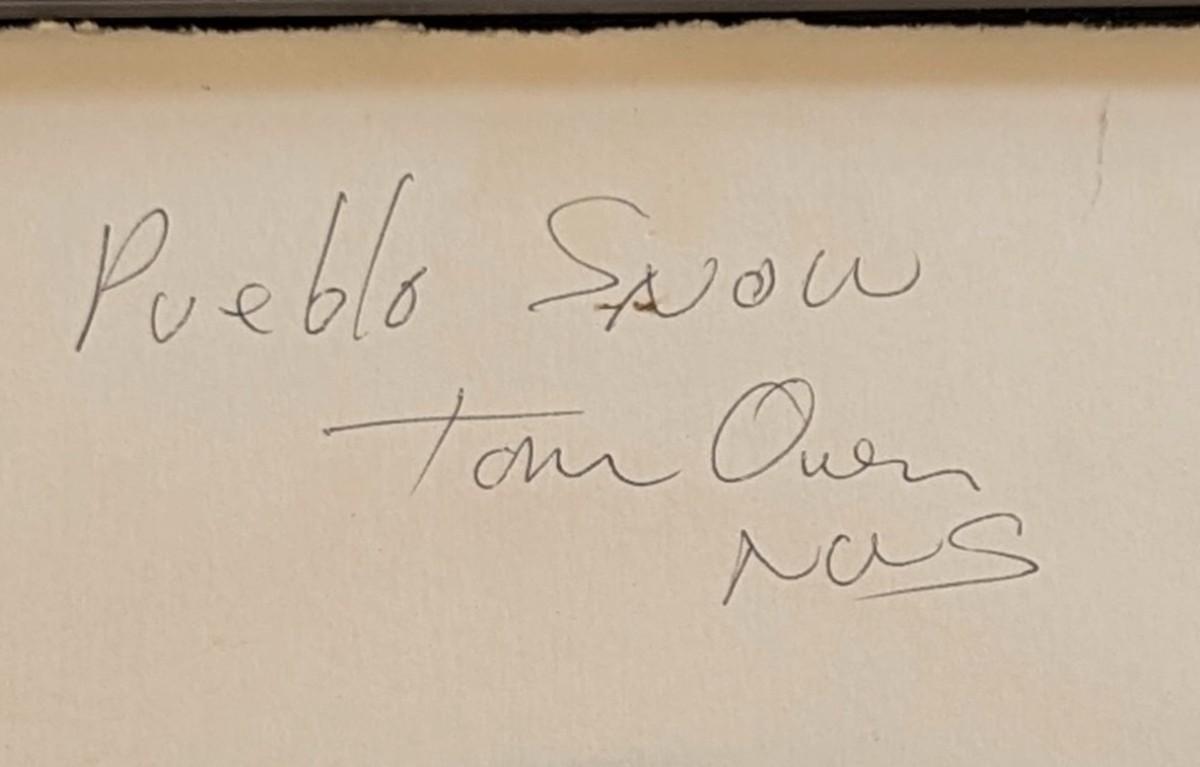 Pueblo Snow
Tom Owen
NWS